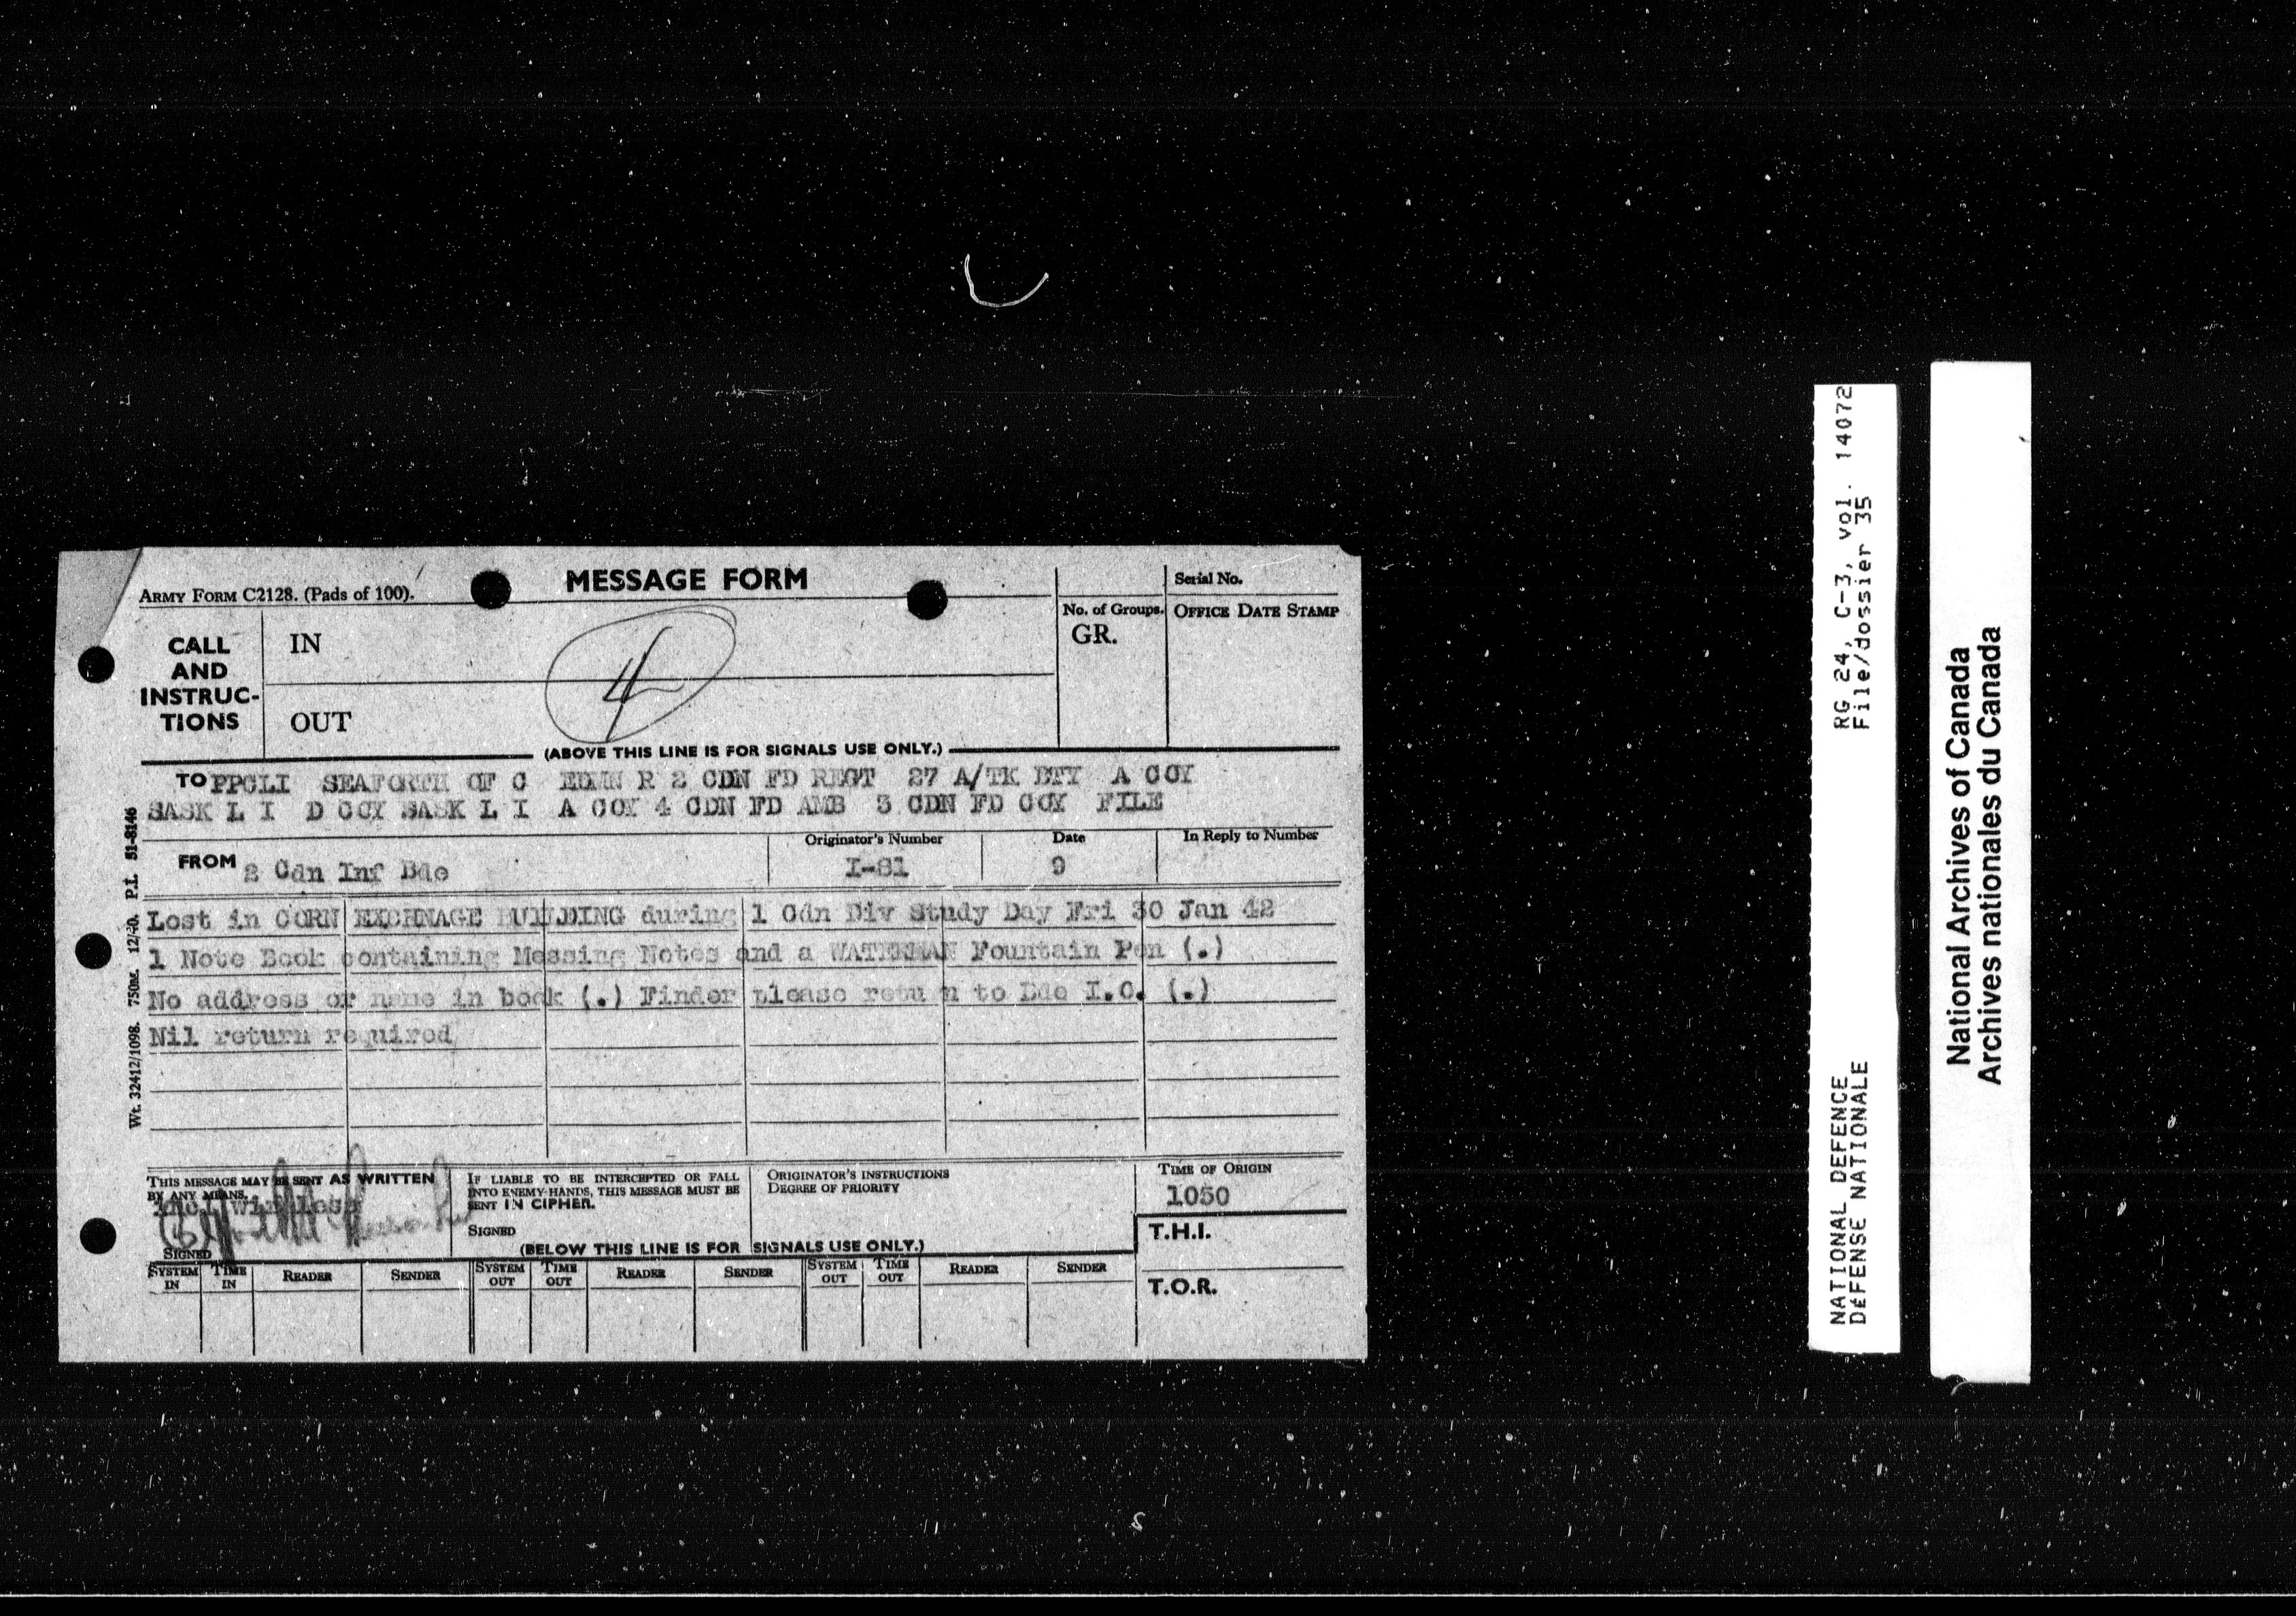 ARMY FORM C2128. (Pads of 100).
MESSAGE FORM
Serial No.
No. of Groups.
GR.
OFFICE DATE STAMP
CALL
AND
INSTRUC-
TIONS
IN
OUT
4
(ABOVE THIS LINE IS FOR SIGNALS USE ONLY.)
TO PPCLI SEAFORTH OF C EDMN R 2 CDN FD REGT 27 A/TK BTY A COY
SASK L I D COY SASK L I A COY 4 CDN FD AMB 3 CDN FD COY FILE
FROM 2 Cdn Inf Bde
Originator's Number
I-81
Date
9
In Reply to Number
Lost in CORN EXCHNAGE BUILDING during 1 Cdn Div Study Day Fri 30 Jan 42
1 Note Book containing Messing Notes and a WATERMAN Fountain Pen (.)
No address or name in book (.) Finder please retu n to Bde I.O. (.)
Nil return required
Wt. 32412/1098. 750M. 12/40. P.I. 51-8146
THIS MESSAGE MAY BE SENT AS WRITTEN
BY ANY MEANS.
incl wireless
SIGNED
IF LIABLE TO BE INTERCEPTED OR FALL
INTO ENEMY HANDS, THIS MESSAGE MUST BE
SENT IN CIPHER.
SIGNED
ORIGINATOR'S INSTRUCTIONS
DEGREE OF PRIORITY
TIME OF ORIGIN
1050
T.H.I.
T.O.R.
(BELOW THIS LINE IS FOR SIGNALS USE ONLY.)
SYSTEM IN TIME IN READER SENDER SYSTEM OUT TIME OUT READER SENDER SYSTEM OUT TIME OUT READER SENDER
NATIONAL DEFENCE RG 24, C-3, vol. 14072
DÉFENSE NATIONALE File/dossier 35
National Archives of Canada
Archives nationales du Canada